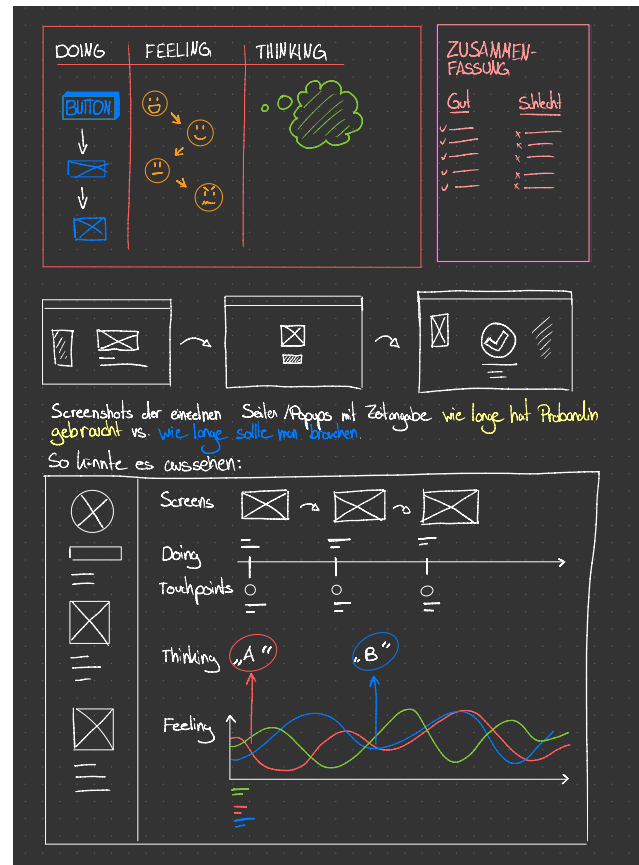 DOING
FEELING
THINKING
BUTTON
ZUSAMMEN-
FASSUNG
Gut
Schlecht
Screenshots der einzelnen Seiten/Popups mit Zeitangabe wie lange hat Probandin
gebraucht vs. wie lange sollte man brauchen.
So könnte es aussehen:
Screens
Doing
Touchpoints
Thinking
„A“
„B“
Feeling